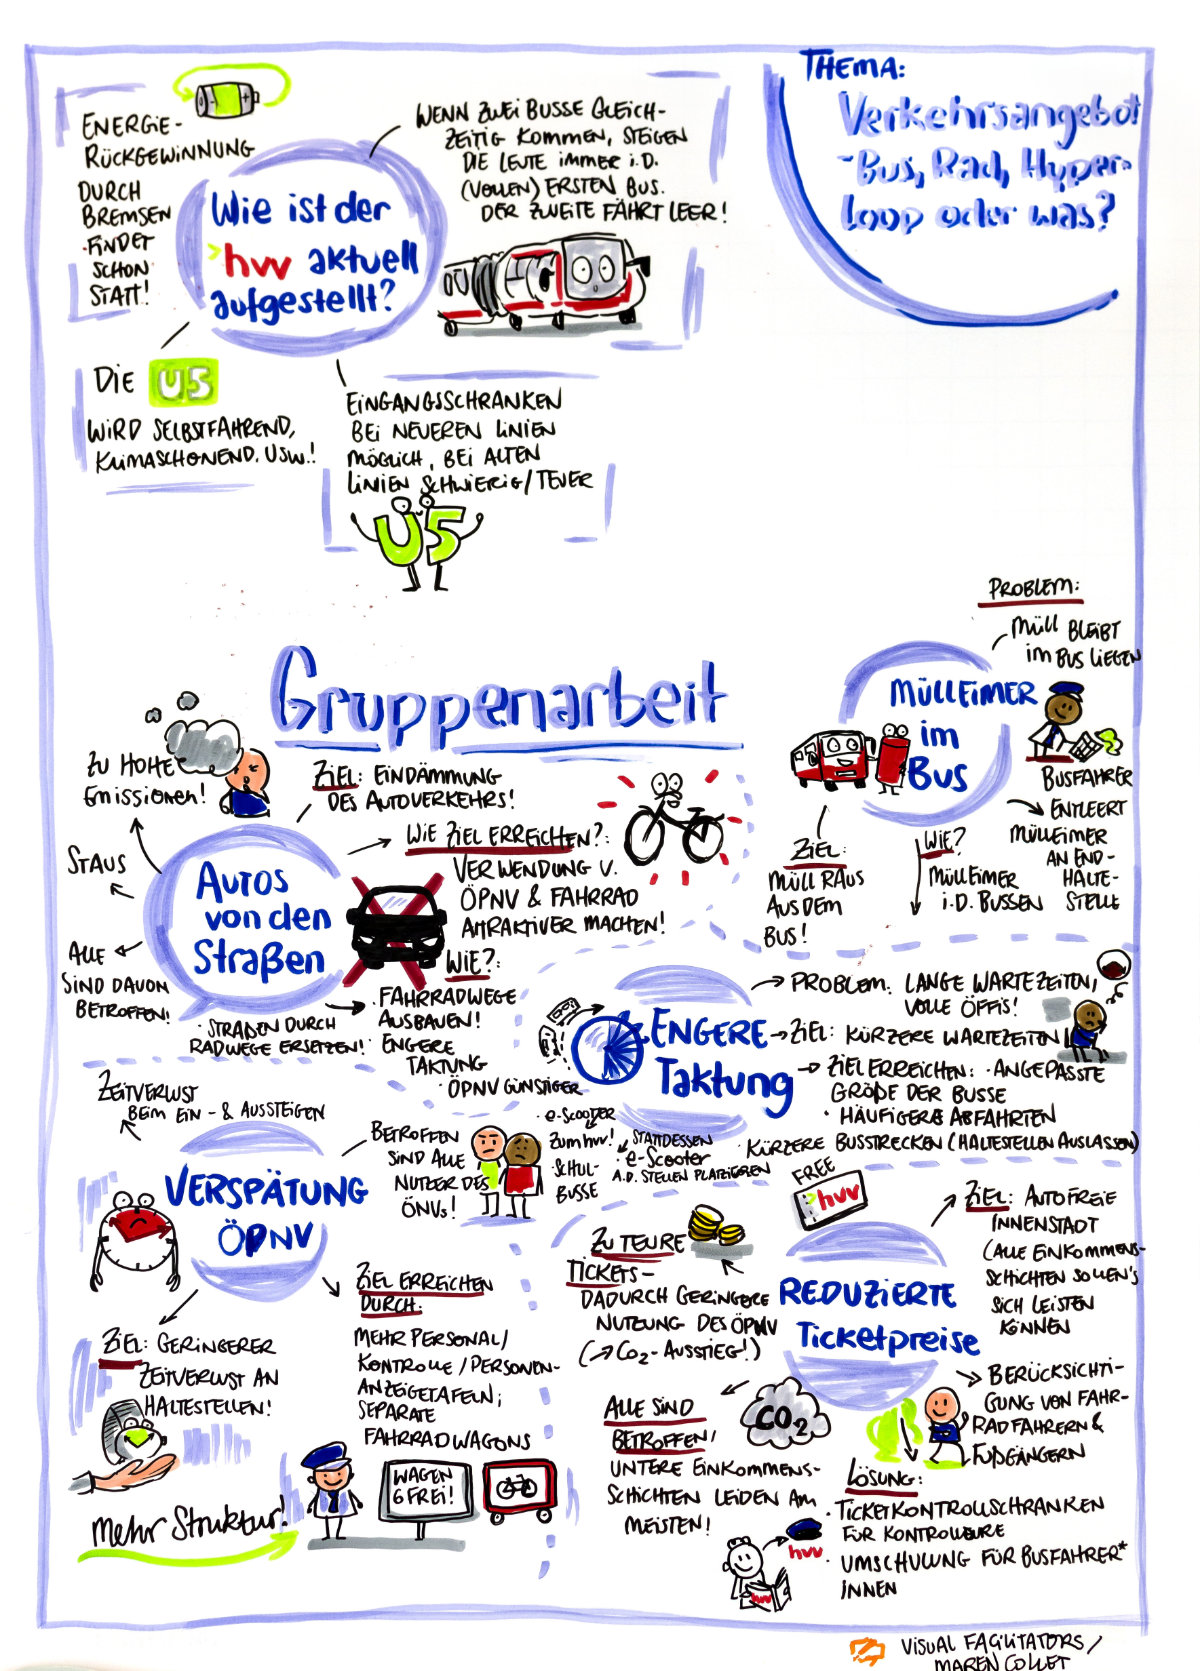 THEMA:
Verkehrsangebot
- Bus, Rad, Hyper-
loop oder was?
ENERGIE-
RÜCKGEWINNUNG
DURCH
BREMSEN
FINDET
SCHON
STATT!
Wie ist der
hvv aktuell
aufgestellt?
WENN ZWEI BUSSE GLEICH-
ZEITIG KOMMEN, STEIGEN
DIE LEUTE IMMER I.D.
(VOLLEN) ERSTEN BUS.
DER ZWEITE FÄHRT LEER!
DIE U5
WIRD SELBSTFAHREND,
KLIMASCHONEND. USW.!
EINGANGSSCHRANKEN
BEI NEUEREN LINIEN
MÖGLICH, BEI ALTEN
LINIEN SCHWIERIG/TEUER
U5
Gruppenarbeit
PROBLEM:
MÜLL BLEIBT
IM BUS LIEGEN
MÜLLEIMER
im
BUS
BUSFAHRER
ENTLEERT
MÜLLEIMER
AN END-
HALTE-
STELLE
ZIEL:
MÜLL RAUS
AUS DEM
BUS!
WIE?
MÜLLEIMER
I.D. BUSSEN
ZU HOHE
EMISSIONEN!
STAUS
ALLE
SIND DAVON
BETROFFEN!
AUTOS
von den
Straßen
ZIEL: EINDÄMMUNG
DES AUTOVERKEHRS!
WIE ZIEL ERREICHEN?:
VERWENDUNG V.
ÖPNV & FAHRRAD
ATTRAKTIVER MACHEN!
WIE?:
· FAHRRADWEGE
AUSBAUEN!
· ENGERE
TAKTUNG
· ÖPNV GÜNSTIGER
· STRAßEN DURCH
RADWEGE ERSETZEN!
ENGERE
Taktung
PROBLEM: LANGE WARTEZEITEN,
VOLLE ÖFFIS!
ZIEL: KÜRZERE WARTEZEITEN
ZIEL ERREICHEN: · ANGEPASSTE
GRÖßE DER BUSSE
· HÄUFIGERE ABFAHRTEN
· KÜRZERE BUSSTRECKEN (HALTESTELLEN AUSLASSEN)
· e-SCOOTER
ZUM hvv!
STATTDESSEN
e-Scooter
A.D. STELLEN PLATZIEREN
· SCHUL-
BUSSE
ZEITVERLUST
BEIM EIN- & AUSSTEIGEN
VERSPÄTUNG
ÖPNV
BETROFFEN
SIND ALLE
NUTZER DES
ÖNVs!
ZIEL: GERINGERER
ZEITVERLUST AN
HALTESTELLEN!
ZIEL ERREICHEN
DURCH:
MEHR PERSONAL/
KONTROLLE/PERSONEN-
ANZEIGETAFELN;
SEPARATE
FAHRRADWAGONS
mehr Struktur!
WAGEN
6 FREI!
FREE
hvv
REDUZIERTE
Ticketpreise
ZU TEURE
TICKETS -
DADURCH GERINGERE
NUTZUNG DES ÖPNV
(→ CO2-AUSSTIEG!)
CO2
ALLE SIND
BETROFFEN!
UNTERE EINKOMMENS-
SCHICHTEN LEIDEN AM
MEISTEN!
ZIEL: AUTOFREIE
INNENSTADT
(ALLE EINKOMMENS-
SCHICHTEN SOLLEN'S
SICH LEISTEN
KÖNNEN
BERÜCKSICHTI-
GUNG VON FAHR-
RADFAHRERN &
FUßGÄNGERN
LÖSUNG:
· TICKETKONTROLLSCHRANKEN
FÜR KONTROLLEURE
· UMSCHULUNG FÜR BUSFAHRER*
INNEN
hvv
hvv
VISUAL FACILITATORS/
MAREN COLLET